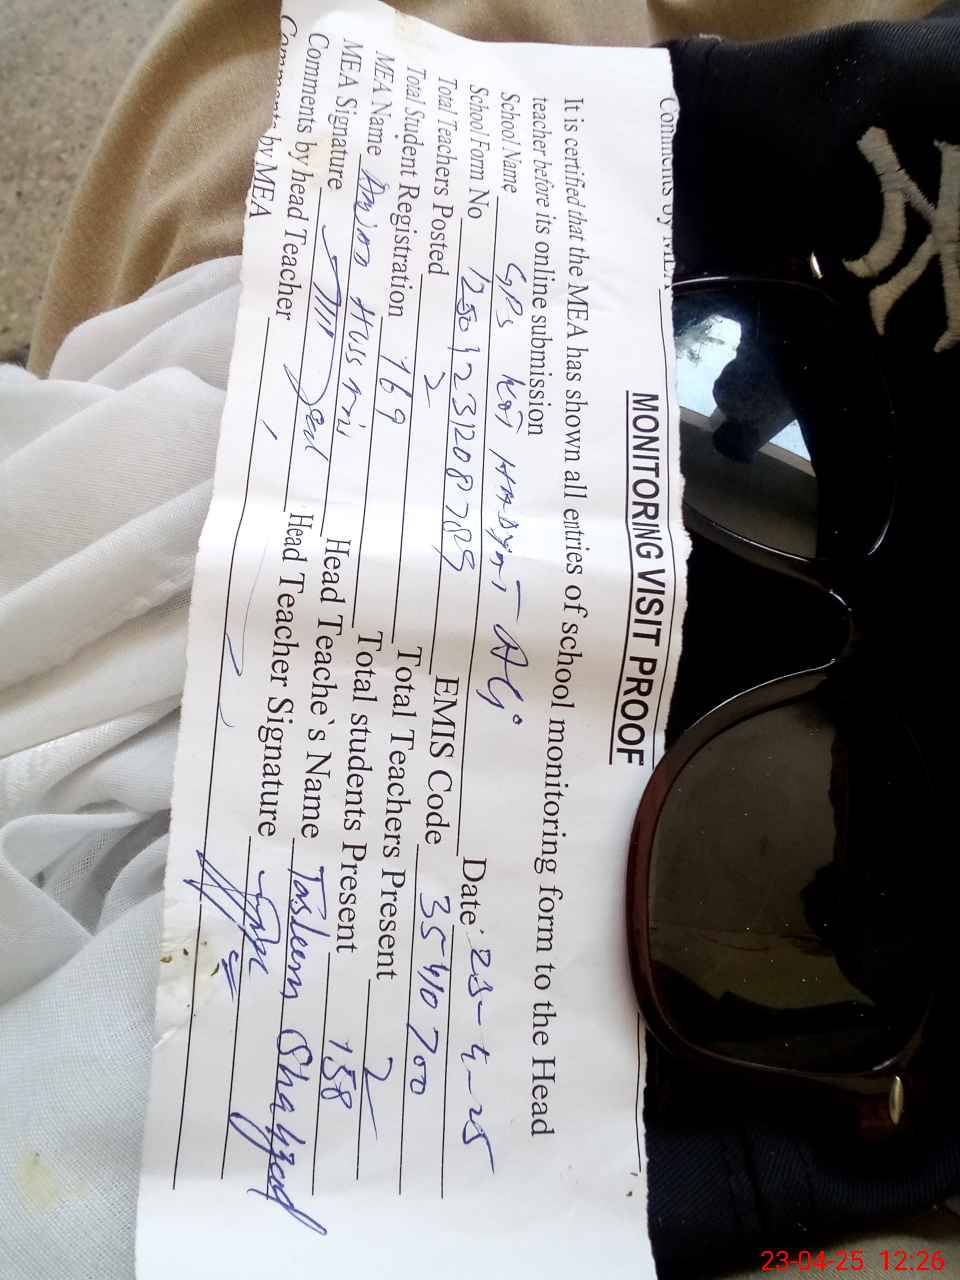 Comments by MEA
MONITORING VISIT PROOF
It is certified that the MEA has shown all entries of school monitoring form to the Head
teacher before its online submission
School Name GPS Kot HADyAT Ali Date: 23-4-25
School Form No EMIS Code 35410700
Total Teachers Posted 2 Total Teachers Present 2
Total Student Registration 169 Total students Present 158
MEA Name Hussain Head Teache`s Name Tasleem Shahzad
MEA Signature Head Teacher Signature
Comments by head Teacher
Comments by MEA
NY
23-04-25 12:26